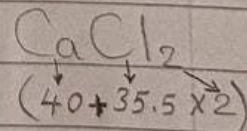 CaCl₂
(40+35.5×2)